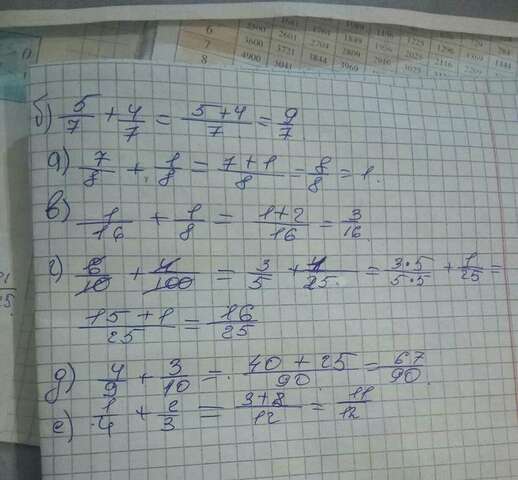 6
7 3600 3721
8 4900
б) 5/7 + 4/7 = 5+4/7 = 9/7
а) 7/8 + 1/8 = 7+1/8 = 8/8 = 1.
в) 1/16 + 1/8 = 1+2/16 = 3/16
г) 6/10 + 4/100 = 3/5 + 1/25 = 3·5/5·5 + 1/25 =
15+1/25 = 16/25
д) 4/9 + 3/10 = 40+25/90 = 67/90.
е) 1/4 + 2/3 = 3+8/12 = 11/12